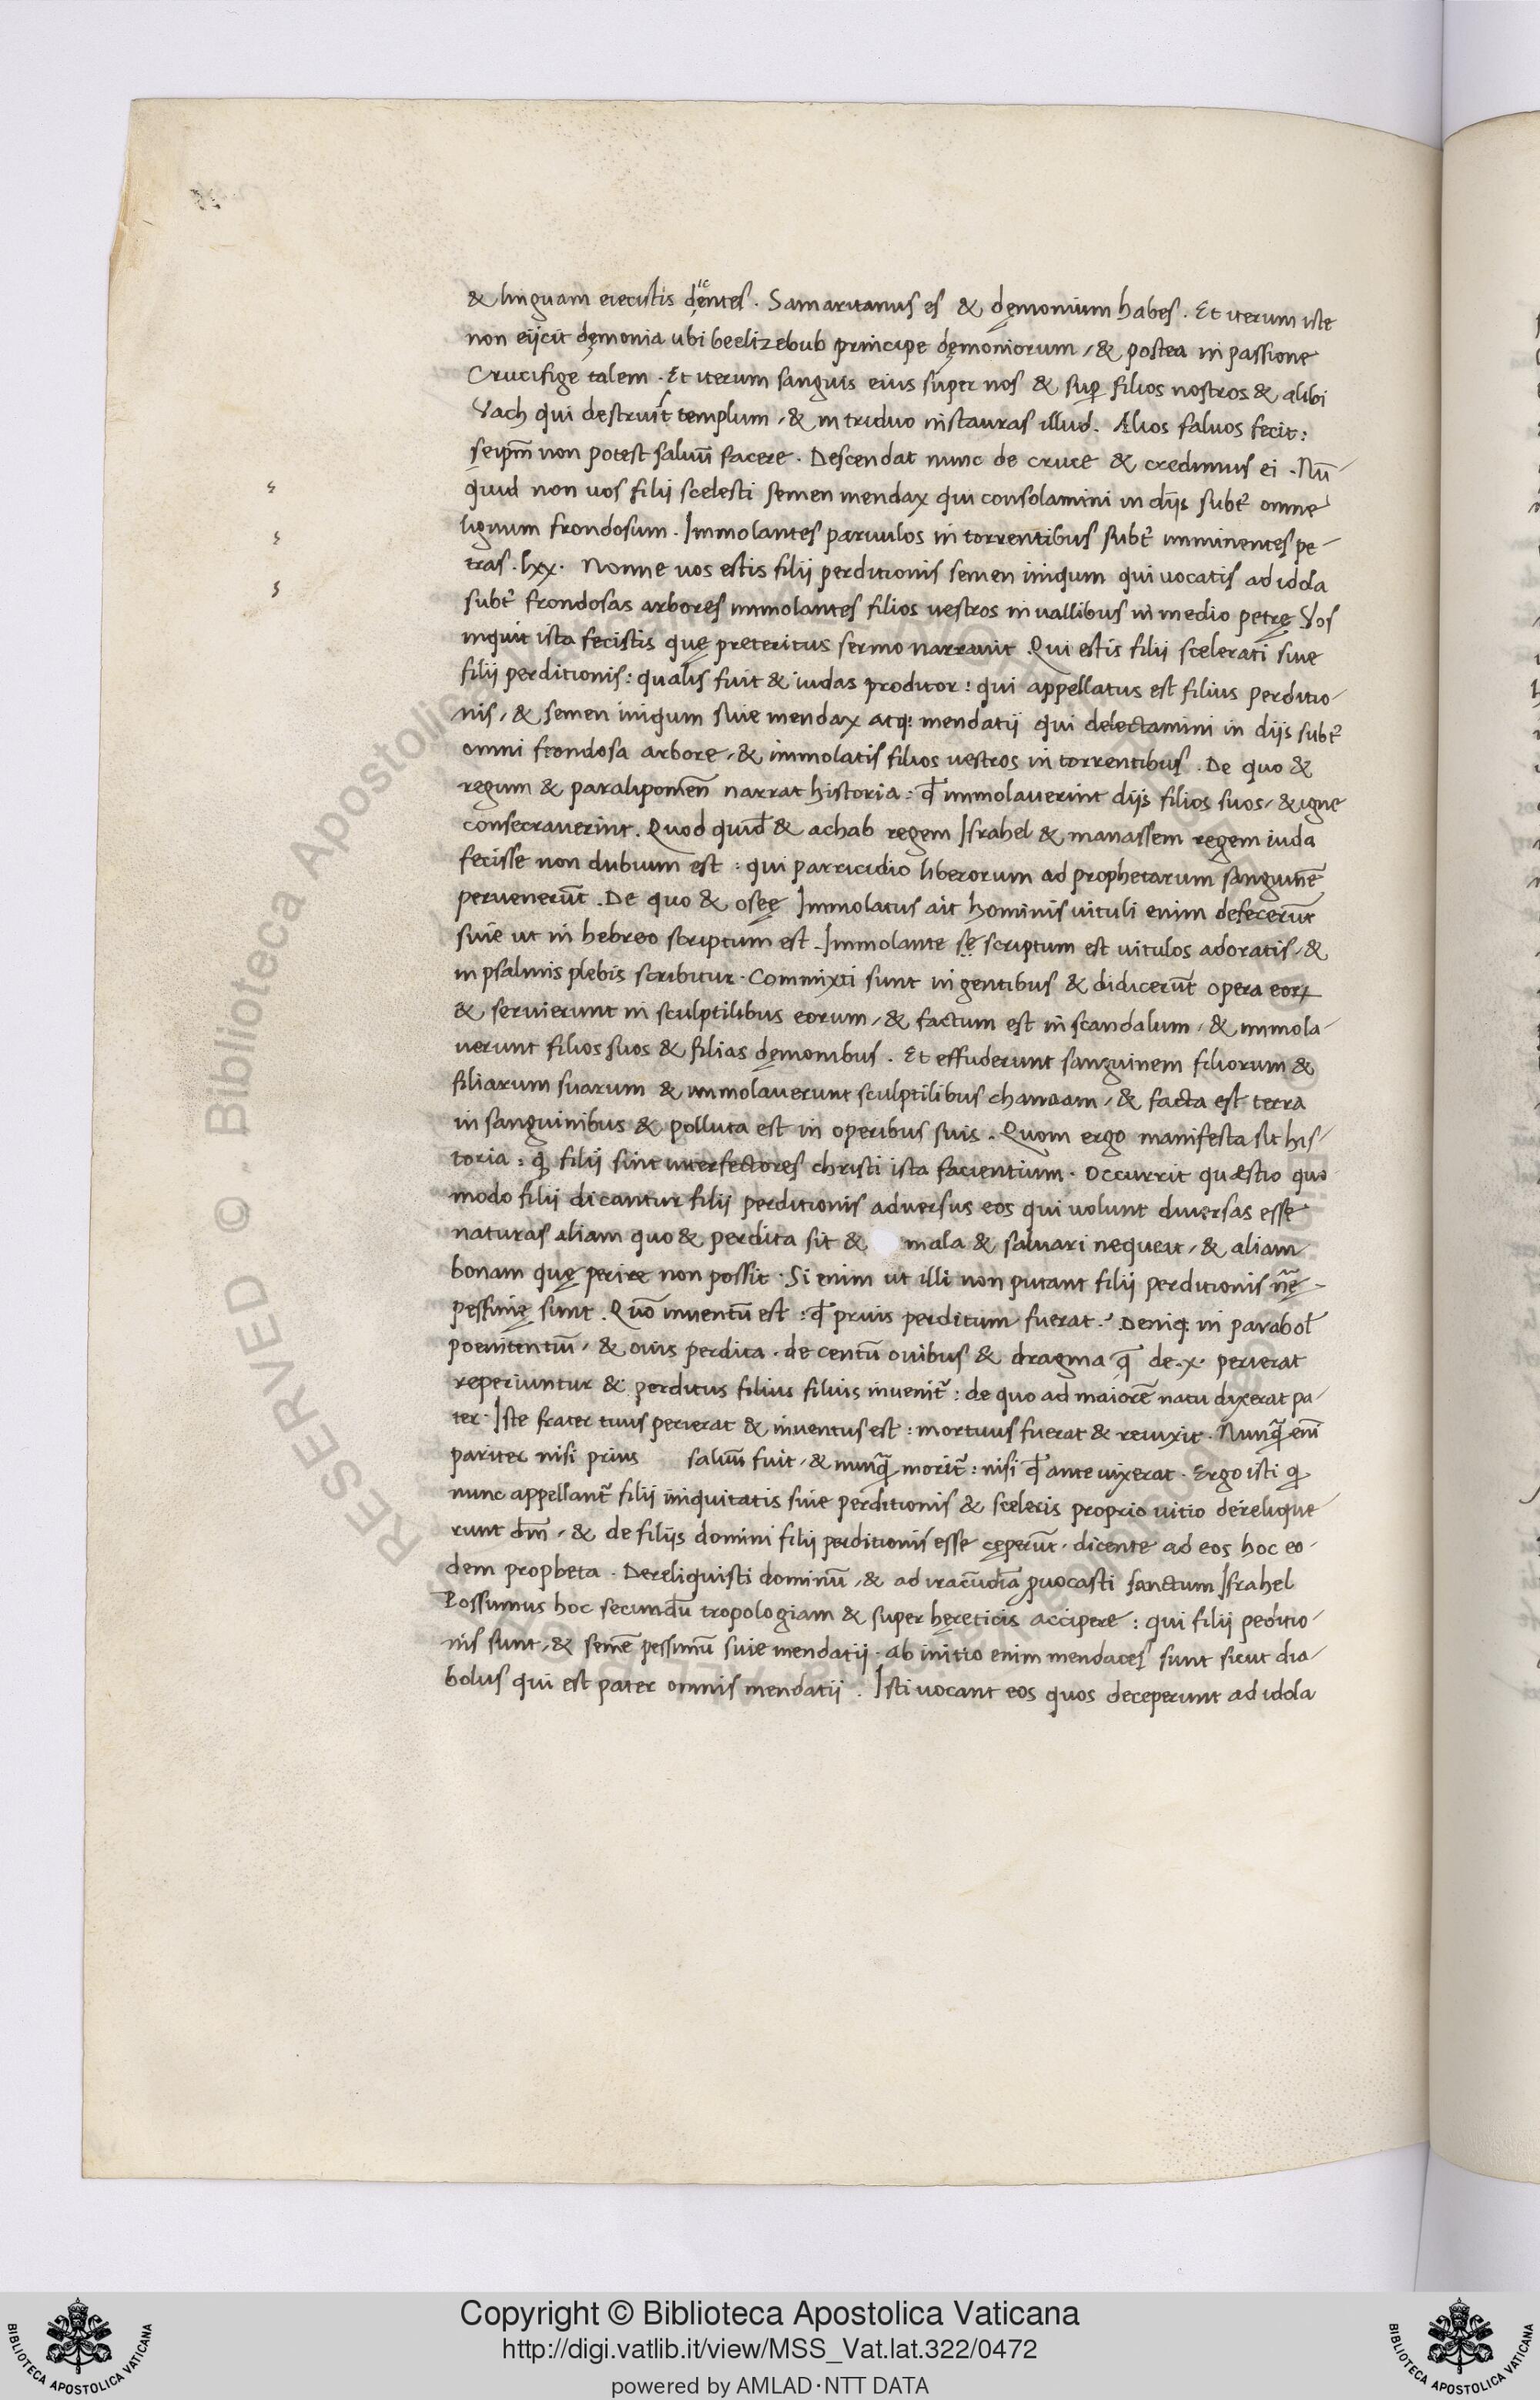 & linguam eiecistis dẹ̄ntes. Samaritanus es & dęmonium habes. Et iterum iste
non eijcit dęmonia ubi beelizebub principe dęmoniorum, & postea in passione
Crucifige talem. Et iterum sanguis eius super nos & sup̱ filios nostros & alibi
Vach qui destruit templum, & in triduo instauras illud. Alios saluos fecit:
seip̄m non potest saluū facere. Descendat nunc de cruce & credimus ei. Nū
quid non uos filij scelesti semen mendax qui consolamini in dijs subt̉ omne
lignum frondosum. Immolantes paruulos in torrentibus subt̉ imminentes pe-
tras. lxx. Nonne uos estis filij perditionis semen iniqum qui uocatis ad idola
subt̉ frondosas arbores immolantes filios uestros in uallibus in medio petrę Vos
inquit ista fecistis quę preteritus sermo narrauit. Qui estis filij scelerati siue
filij perditionis: qualis fuit & iudas proditor: qui appellatus est filius perditio-
nis, & semen iniqum siue mendax atq: mendatij qui delectamini in dijs subt̉
omni frondosa arbore, & immolatis filios uestros in torrentibus. De quo &
regum & paralipomen̄ narrat historia: qđ immolauerint dijs filios suos, & igne
consecrauerint. Quod quid̄ & achab regem Israhel & manassem regem iuda
fecisse non dubium est: qui parricidio liberorum ad prophetarum sanguinē
peruenerūt. De quo & oseę Immolatus ait hominis uituli enim defecerūt
siue ut in hebreo scriptum est. Immolante se scriptum est uitulos adoratis, &
in psalmis plebis scribitur. Commixti sunt in gentibus & didicerūt opera eoꝝ
& seruierunt in sculptilibus eorum, & factum est in scandalum, & immola-
uerunt filios suos & filias dęmonibus. Et effuderunt sanguinem filiorum &
filiarum suarum & immolauerunt sculptilibus chanaam, & facta est terra
in sanguinibus & polluta est in operibus suis. Quom ergo manifesta sit his-
toria: ꝙ filij sint interfectores christi ista facientium. Occurrit quæstio quo
modo filij dicantur filij perditionis aduersus eos qui uolunt diuersas esse
naturas aliam quo & perdita sit & mala & saluari nequeit, & aliam
bonam quę perire non possit. Si enim ut illi non putant filij perditionis n̄ę
pessimę sunt. Quō inuentū est: qđ prius perditum fuerat. Deniq: in parabol̄
poenitentiū, & ouis perdita. de centū ouibus & dragma q̄ de.x. perierat
reperiuntur & perditus filius filius inuenit̉: de quo ad maiorē natu dixerat pa-
ter. Iste frater tuus perierat & inuentus est: mortuus fuerat & reuixit. Nunꝗ̄ enī
pariter nisi prius saluū fuit, & nunꝗ̄ morit̉: nisi qđ ante uixerat. Ergo isti ꝗ
nunc appellant̉ filij iniquitatis siue perditionis & sceleris proprio uitio dereliqve
runt dm̄, & de filijs domini filij perditionis esse cęperūt, dicente ad eos hoc eo-
dem propheta. Dereliquisti dominū, & ad iracūdiā ꝓuocasti sanctum Israhel
Possumus hoc secundū tropologiam & super hęreticis accipere: qui filij peditio-
nis sunt, & semē pessimū siue mendatij. ab initio enim mendaces sunt sicut dia-
bolus qui est pater omnis mendatij. Isti uocant eos quos deceperunt ad idola
RESERVED © Biblioteca Apostolica
Copyright © Biblioteca Apostolica Vaticana
http://digi.vatlib.it/view/MSS_Vat.lat.322/0472
powered by AMLAD·NTT DATA
BIBLIOTECA APOSTOLICA VATICANA
BIBLIOTECA APOSTOLICA VATICANA